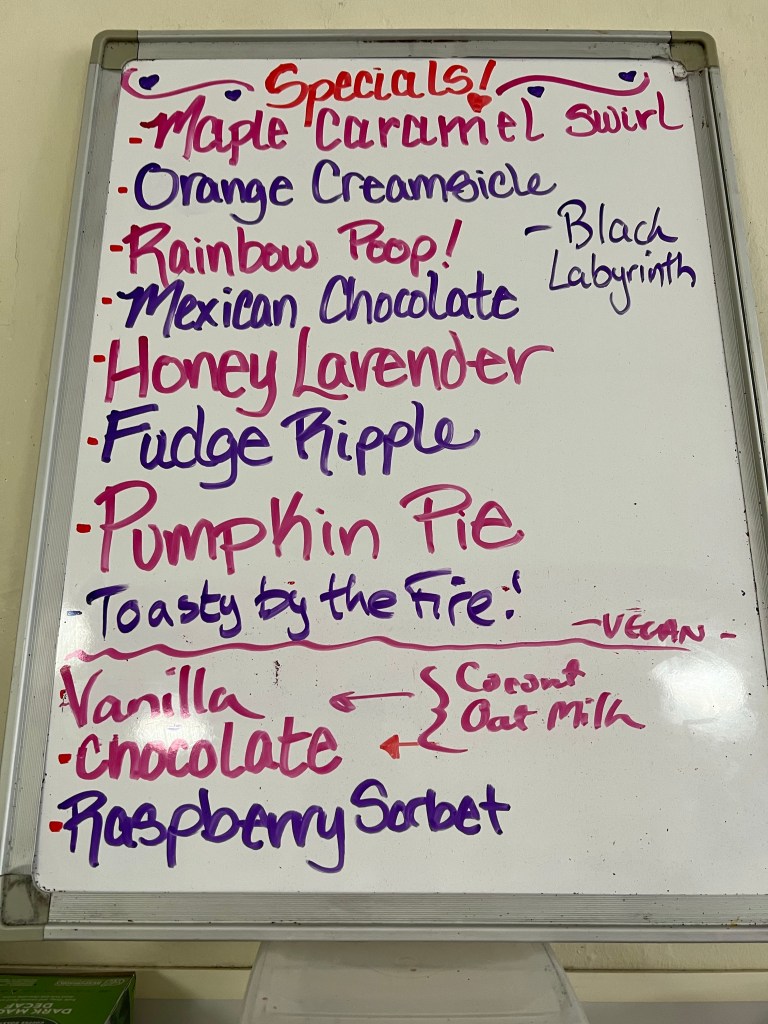 Specials!
- Maple Caramel Swirl
- Orange Creamsicle
- Rainbow Poop!
- Black
Labyrinth
- Mexican Chocolate
- Honey Lavender
- Fudge Ripple
- Pumpkin Pie
- Toasty by the Fire!
- VEGAN -
Vanilla
Coconut
Oat Milk
- Chocolate
- Raspberry Sorbet
DARK MAG
DECAF